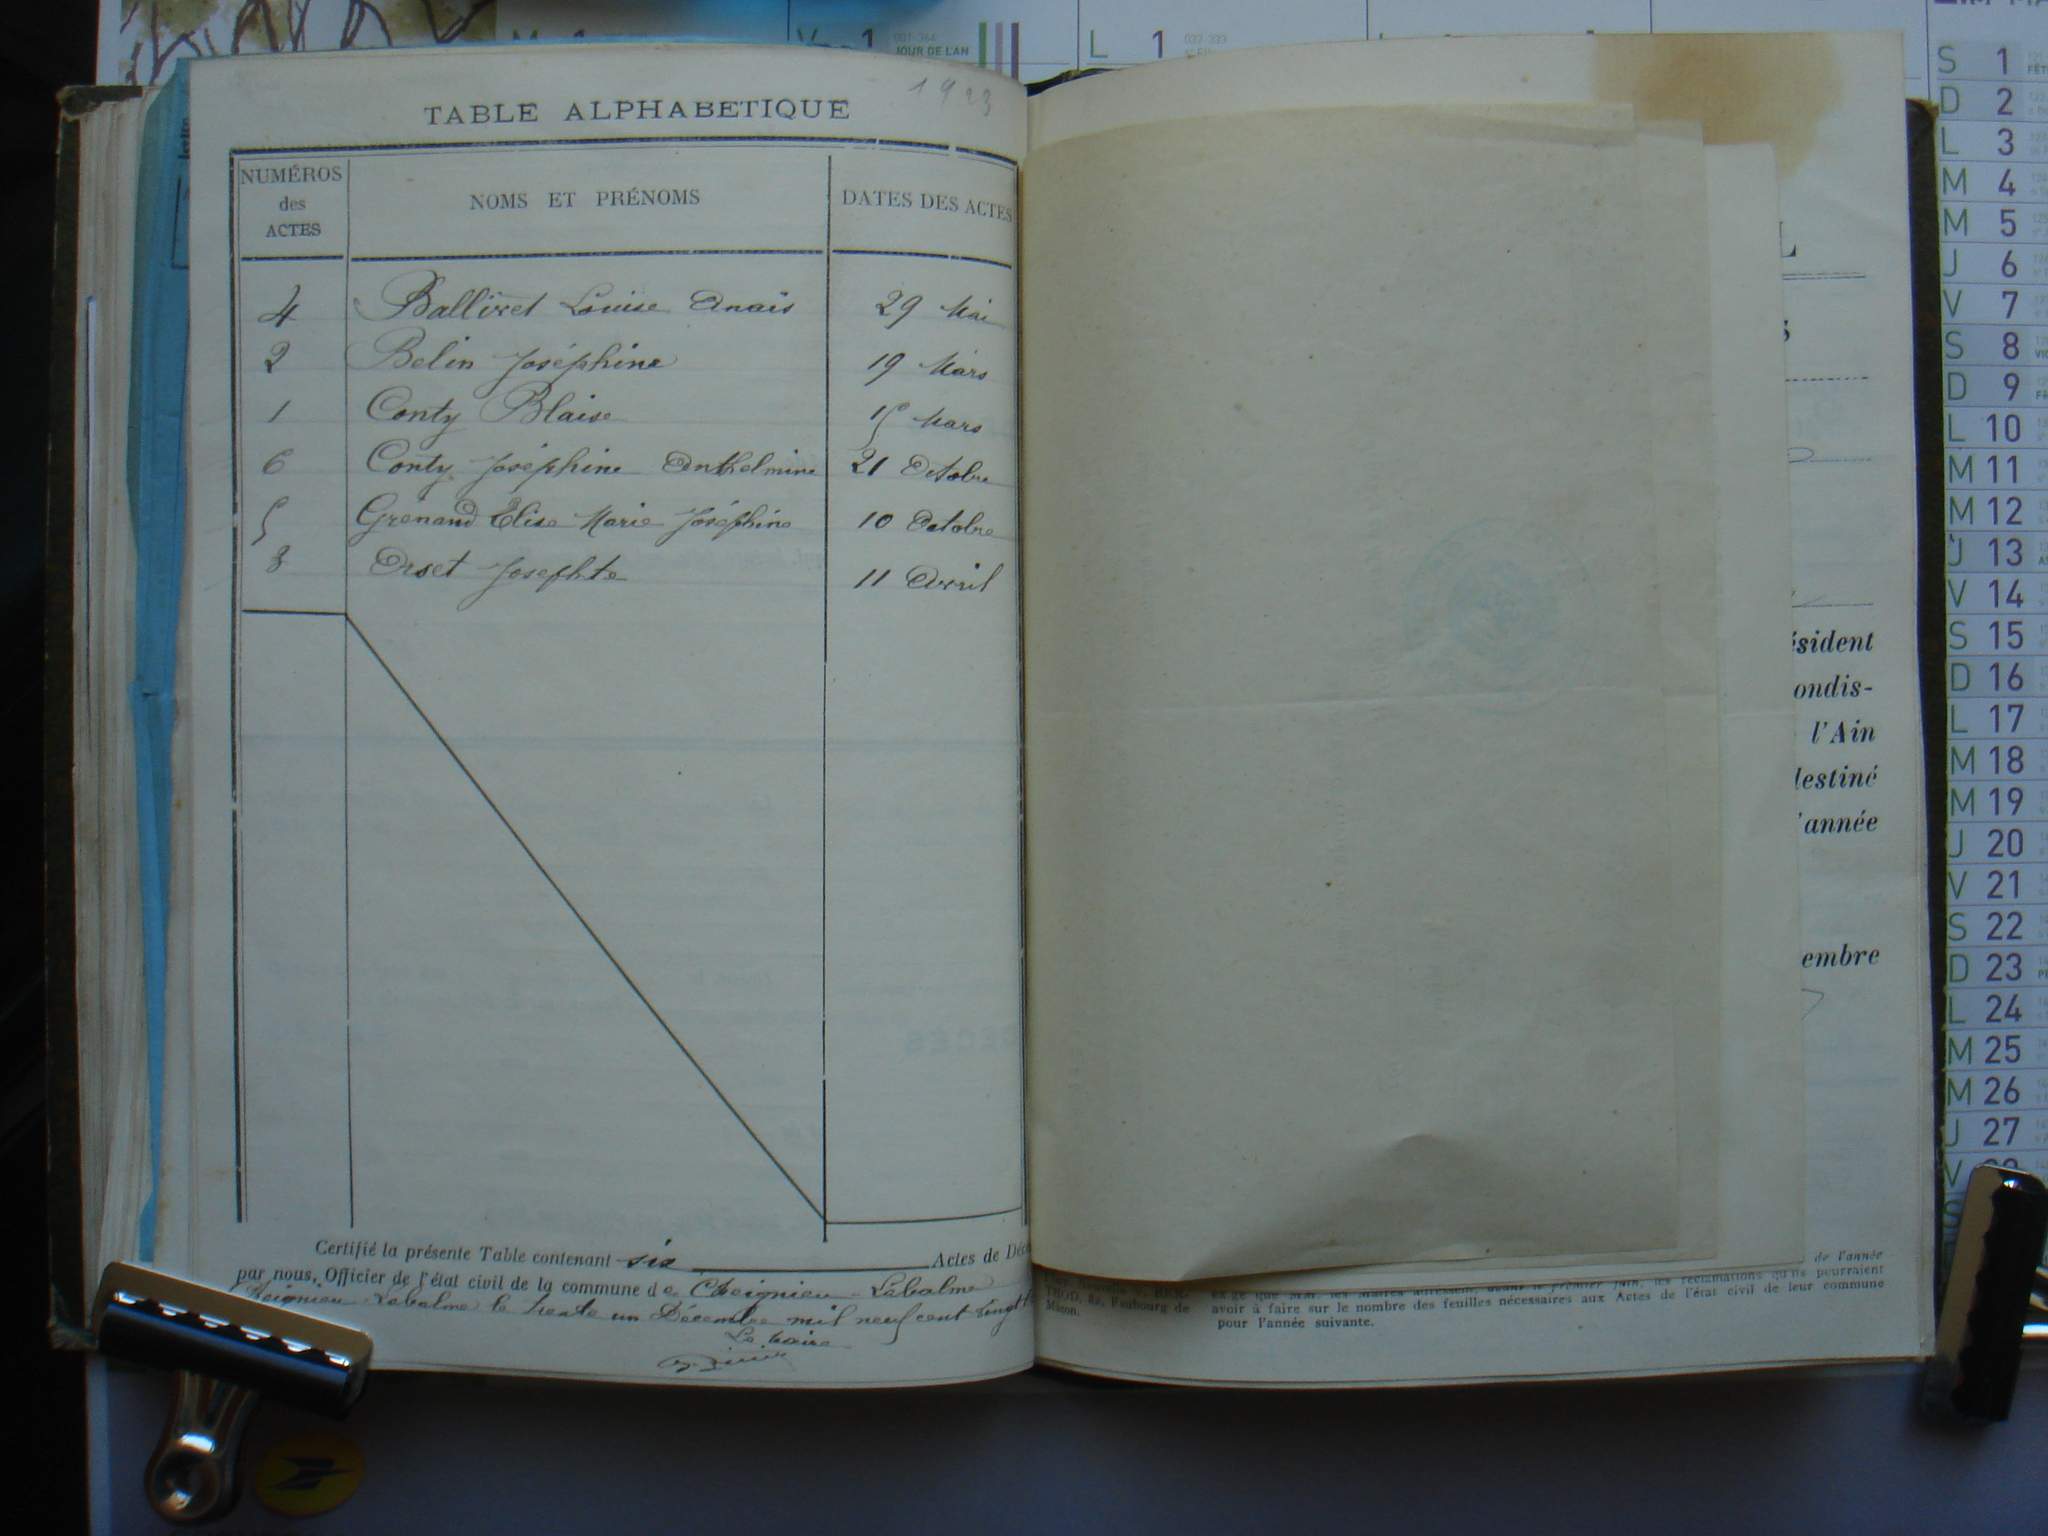 1923
TABLE ALPHABETIQUE
NUMÉROS des ACTES NOMS ET PRÉNOMS DATES DES ACTES
4 Ballivet Louise Anaïs 29 Mai
2 Belin Joséphine 19 Mars
1 Conty Blaise 15 Mars
6 Conty Joséphine Anthelmine 21 Octobre
5 Grenand Élise Marie Joséphine 10 Octobre
3 Orset Josephte 11 Avril
Certifié la présente Table contenant six Actes de Déc
par nous, Officier de l'état civil de la commune de Cheignieu-Labalme
Cheignieu-Labalme le trente un Décembre mil neuf cent vingt
Le Maire
L
S
ésident
ondis-
l'Ain
destiné
'année
embre
de l'année
les réclamations qu'ils pourraient
avoir à faire sur le nombre des feuilles nécessaires aux Actes de l'état civil de leur commune
pour l'année suivante.
Faubourg de
Mâcon.
V 1 JOUR DE L'AN
L 1
S 1
D 2
L 3
M 4
M 5
J 6
V 7
S 8
D 9
L 10
M 11
M 12
J 13
V 14
S 15
D 16
L 17
M 18
M 19
J 20
V 21
S 22
D 23
L 24
M 25
M 26
J 27
V